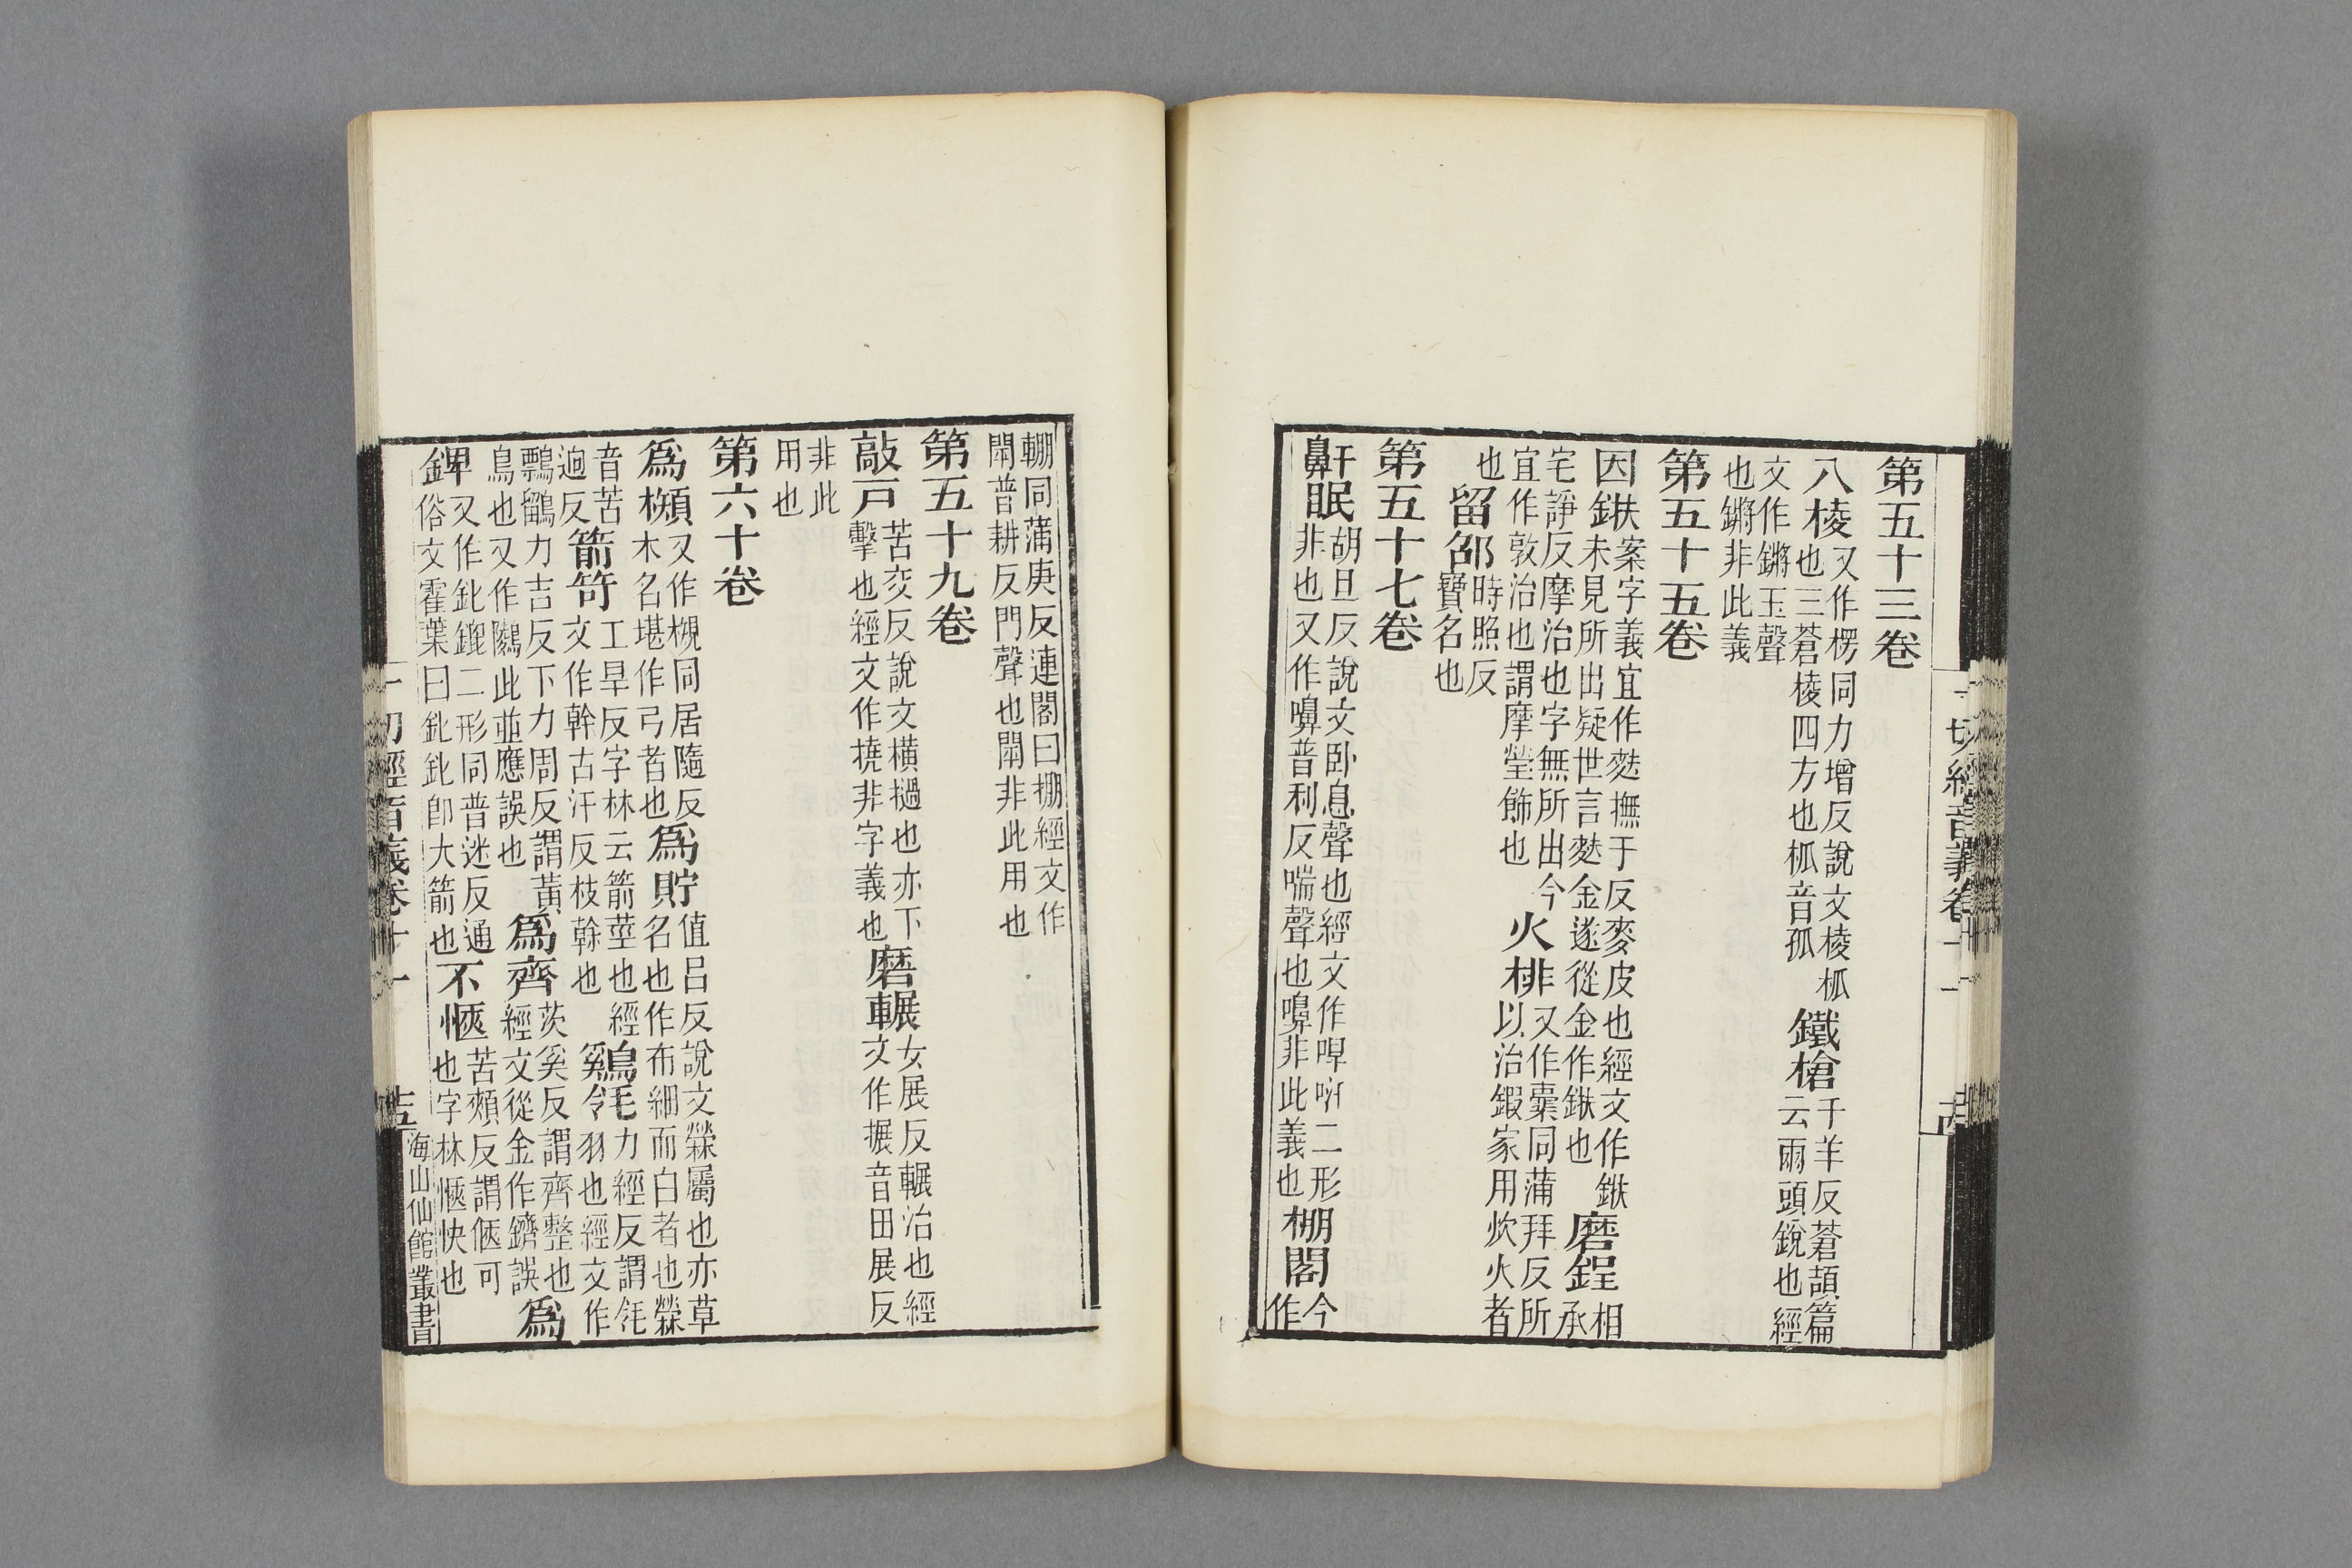 第五十三卷
八棱又作楞同力增反說文棱柧也三蒼棱四方也柧音孤鐵槍千羊反蒼頡篇云兩頭銳也經
文作鏘玉聲也鏘非此義
第五十五卷
因䥽案字義宜作麩撫于反麥皮也經文作䥽未見所出疑世言麩金遂從金作䥽也磨鋥相承
宅諍反摩治也字無所出今宜作敦治也謂摩瑩飾也火排又作橐同蒲拜反所以治鍜家用炊火者
也留邵時照反寶名也
第五十七卷
鼾眠胡旦反說文卧息聲也經文作哻二形非也又作嚊普利反喘聲也嚊非此義也棚閣今作
輣同蒲庚反連閣曰棚經文作閛普耕反門聲也閛非此用也
第五十九卷
敲戸苦交反說文橫撾也亦下擊也經文作撓非字義也磨輾女展反輾治也經文作搌音田展反
非此用也
第六十卷
爲槻又作槻同居隨反木名堪作弓者也爲貯值呂反說文檾屬也亦草名也作布細而白者也檾
音苦迥反箭笴工旱反字林云箭莖也經文作幹古汗反枝幹也鷄毛力經反謂毛令羽也經文作
鸘鶹力吉反下力周反謂黃鳥也又作鷅此並應誤也爲齊茨奚反謂齊整也經文從金作鑇誤也爲
錍又作鈚鎞二形同普迷反通俗文霍葉曰鈚鈚卽大箭也不愜苦頰反謂愜可也字林愜快也
一切經音義卷十一
海山仙館叢書